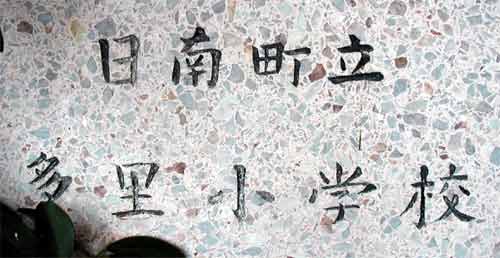 日南町立
多里小学校